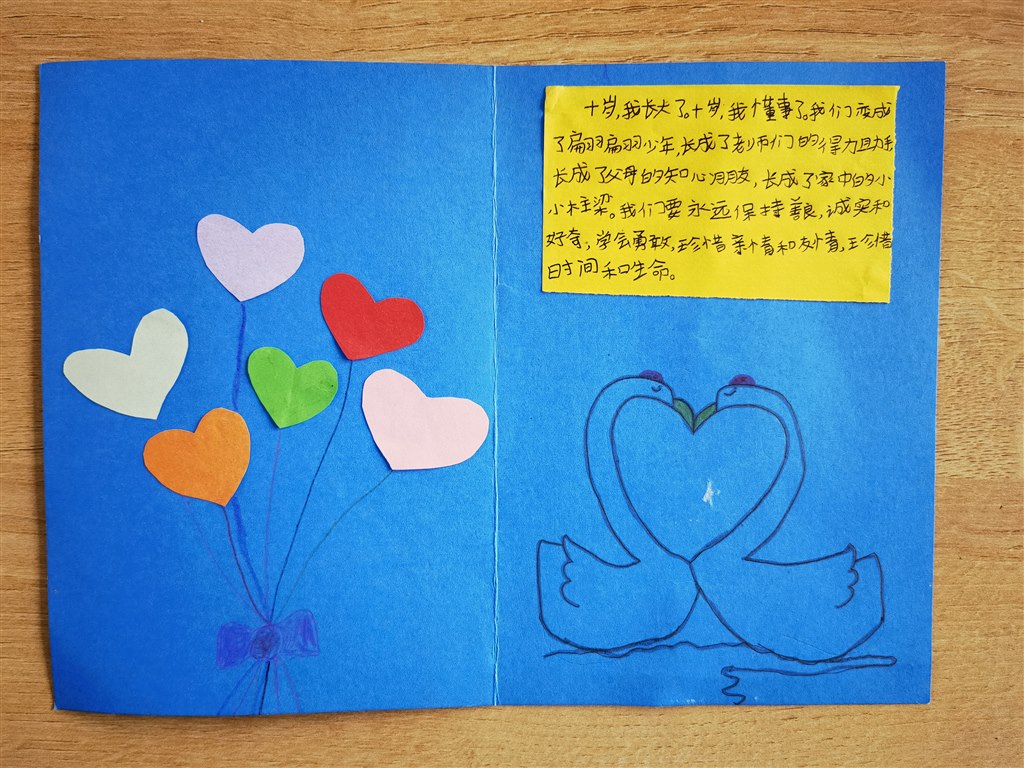 十岁，我长大了。十岁，我懂事了。我们变成
了翩翩少年，长成了老师们的得力助手
长成了父母的知心朋友，长成了家中的小
小柱梁。我们要永远保持善良，诚实和
好奇，学会勇敢，珍惜亲情和友情，珍惜
时间和生命。